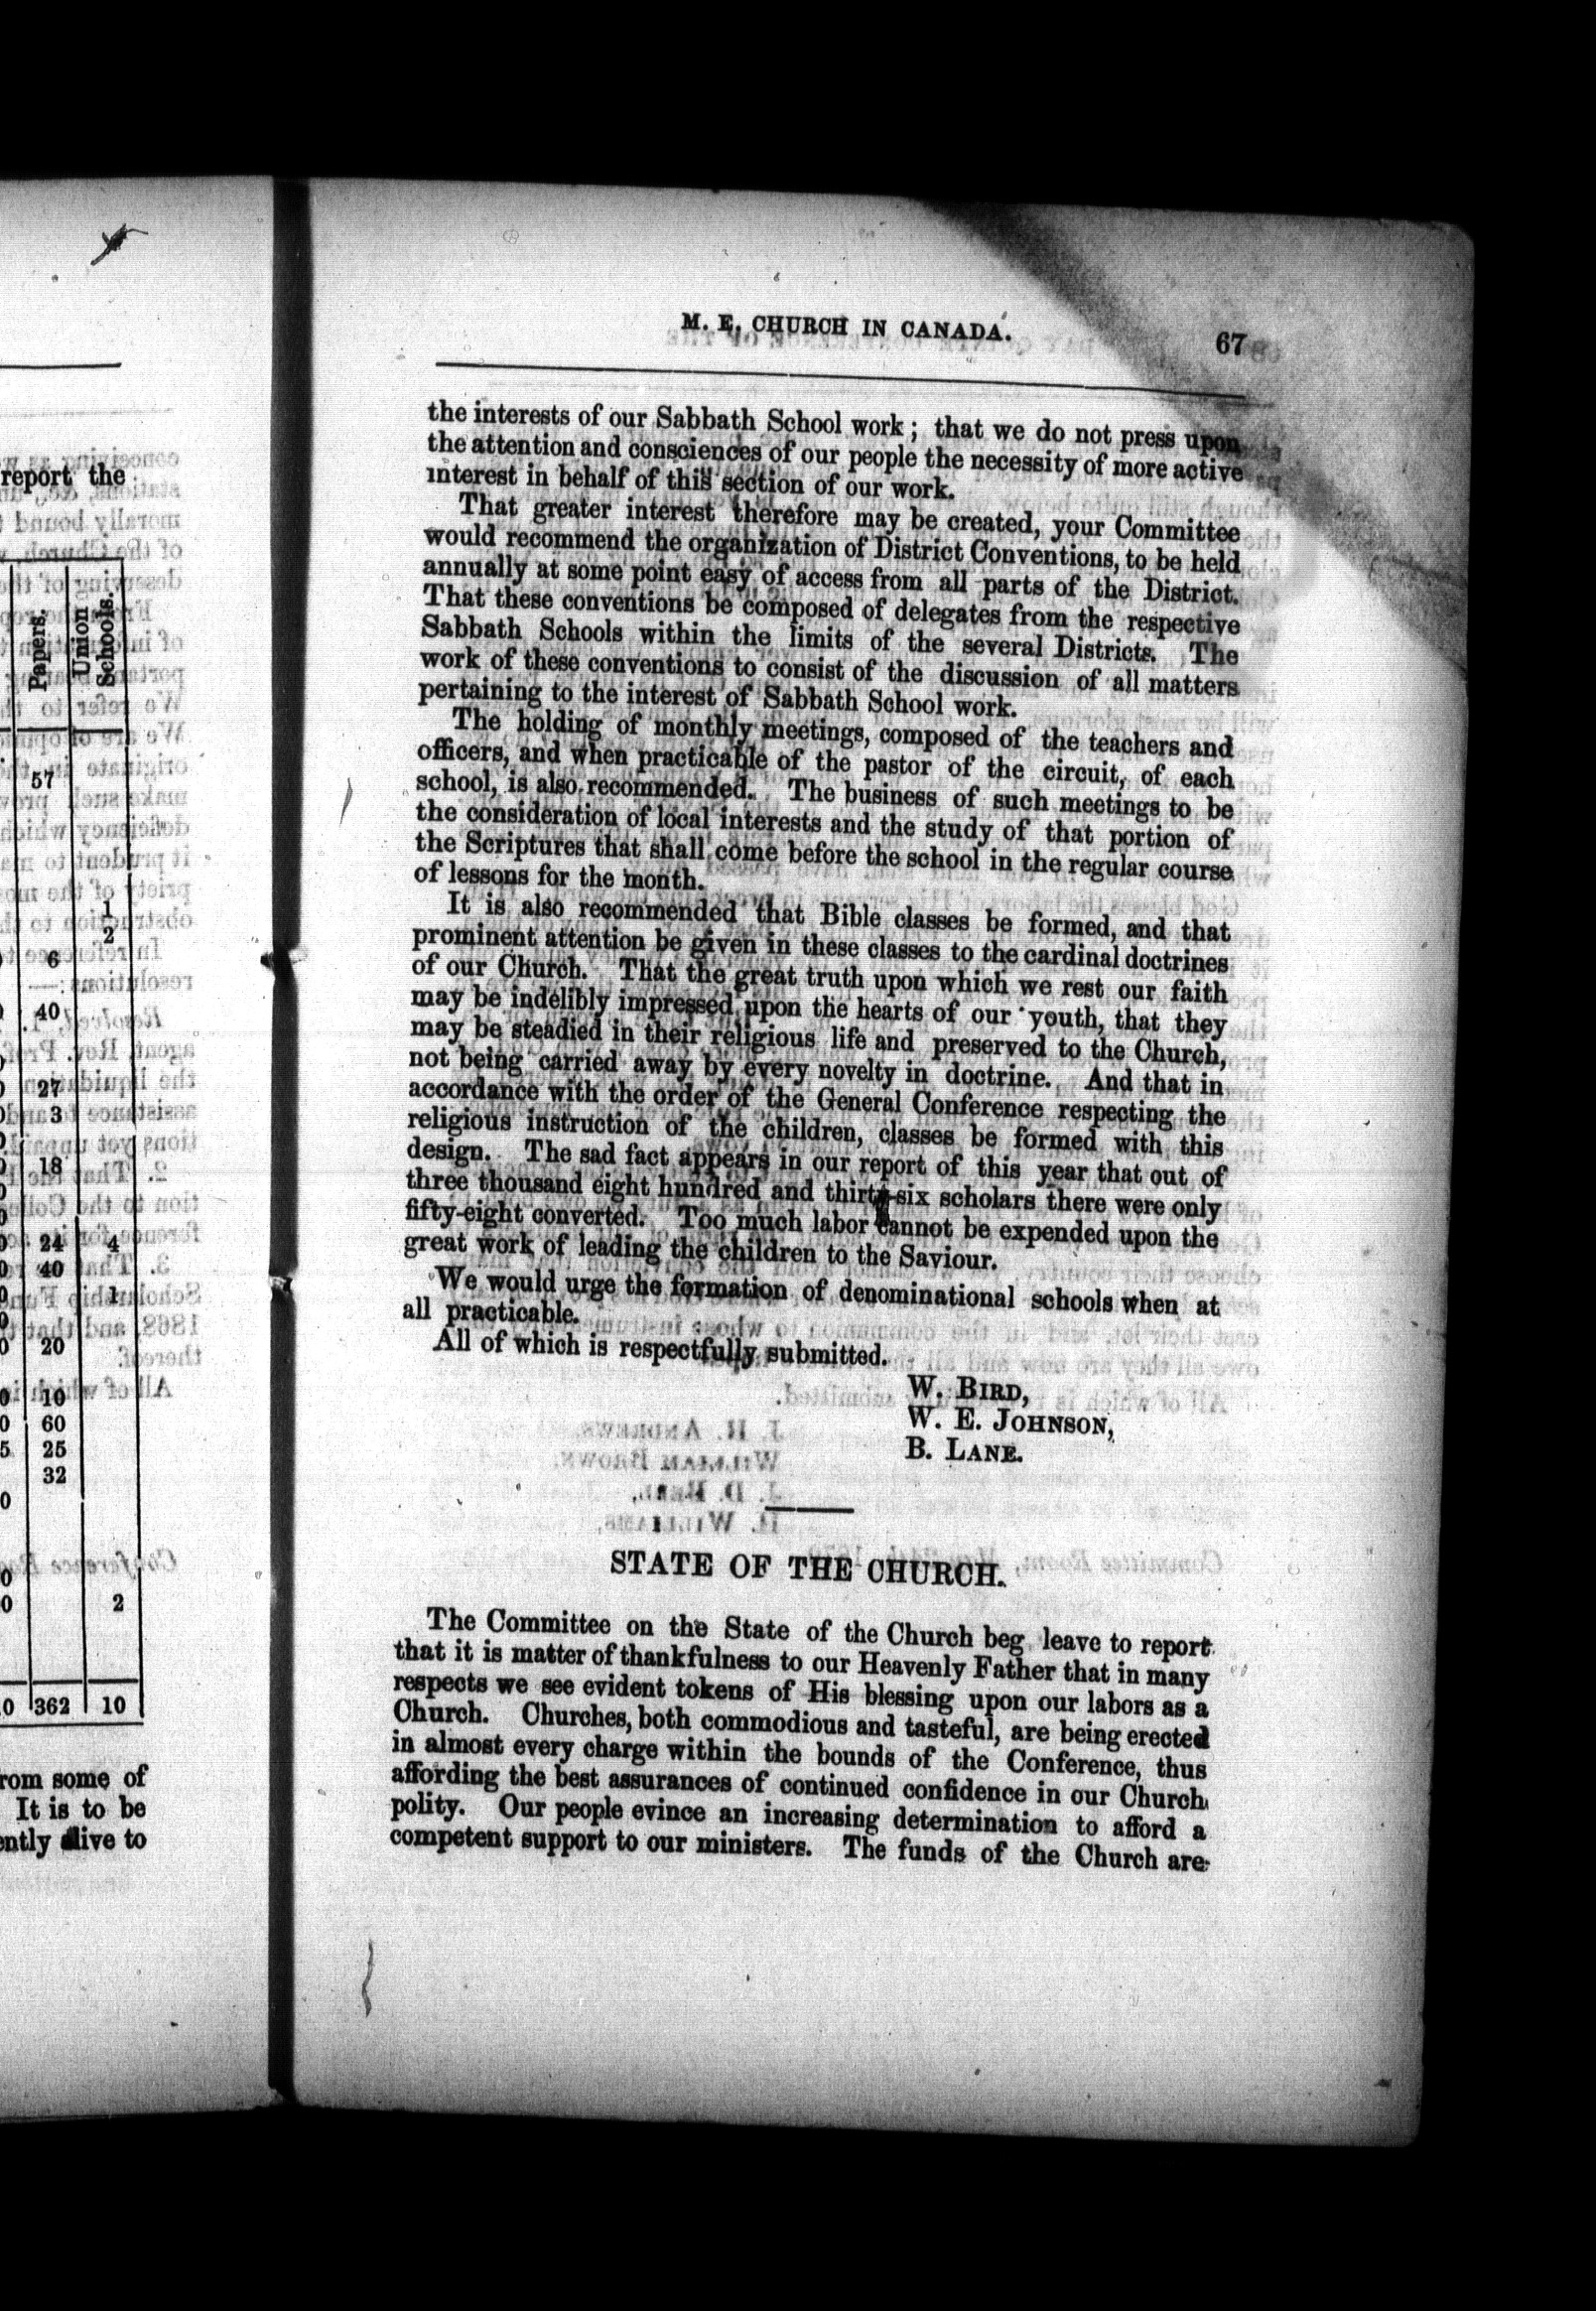 report the
Papers.
Union
Schools.
57
1
2
6
40
27
3
18
24 4
40
1
20
10
60
25
32
2
362 10
some of
It is to be
alive to
M. E. CHURCH IN CANADA.
67
the interests of our Sabbath School work; that we do not press upon
the attention and consciences of our people the necessity of more active
interest in behalf of this section of our work.
That greater interest therefore may be created, your Committee
would recommend the organization of District Conventions, to be held
annually at some point easy of access from all parts of the District.
That these conventions be composed of delegates from the respective
Sabbath Schools within the limits of the several Districts. The
work of these conventions to consist of the discussion of all matters
pertaining to the interest of Sabbath School work.
The holding of monthly meetings, composed of the teachers and
officers, and when practicable of the pastor of the circuit, of each
school, is also recommended. The business of such meetings to be
the consideration of local interests and the study of that portion of
the Scriptures that shall come before the school in the regular course
of lessons for the month.
It is also recommended that Bible classes be formed, and that
prominent attention be given in these classes to the cardinal doctrines
of our Church. That the great truth upon which we rest our faith
may be indelibly impressed upon the hearts of our youth, that they
may be steadied in their religious life and preserved to the Church,
not being carried away by every novelty in doctrine. And that in
accordance with the order of the General Conference respecting the
religious instruction of the children, classes be formed with this
design. The sad fact appears in our report of this year that out of
three thousand eight hundred and thirty-six scholars there were only
fifty-eight converted. Too much labor cannot be expended upon the
great work of leading the children to the Saviour.
We would urge the formation of denominational schools when at
all practicable.
All of which is respectfully submitted.
W. BIRD,
W. E. JOHNSON,
B. LANE.
STATE OF THE CHURCH.
The Committee on the State of the Church beg leave to report
that it is matter of thankfulness to our Heavenly Father that in many
respects we see evident tokens of His blessing upon our labors as a
Church. Churches, both commodious and tasteful, are being erected
in almost every charge within the bounds of the Conference, thus
affording the best assurances of continued confidence in our Church
polity. Our people evince an increasing determination to afford a
competent support to our ministers. The funds of the Church are